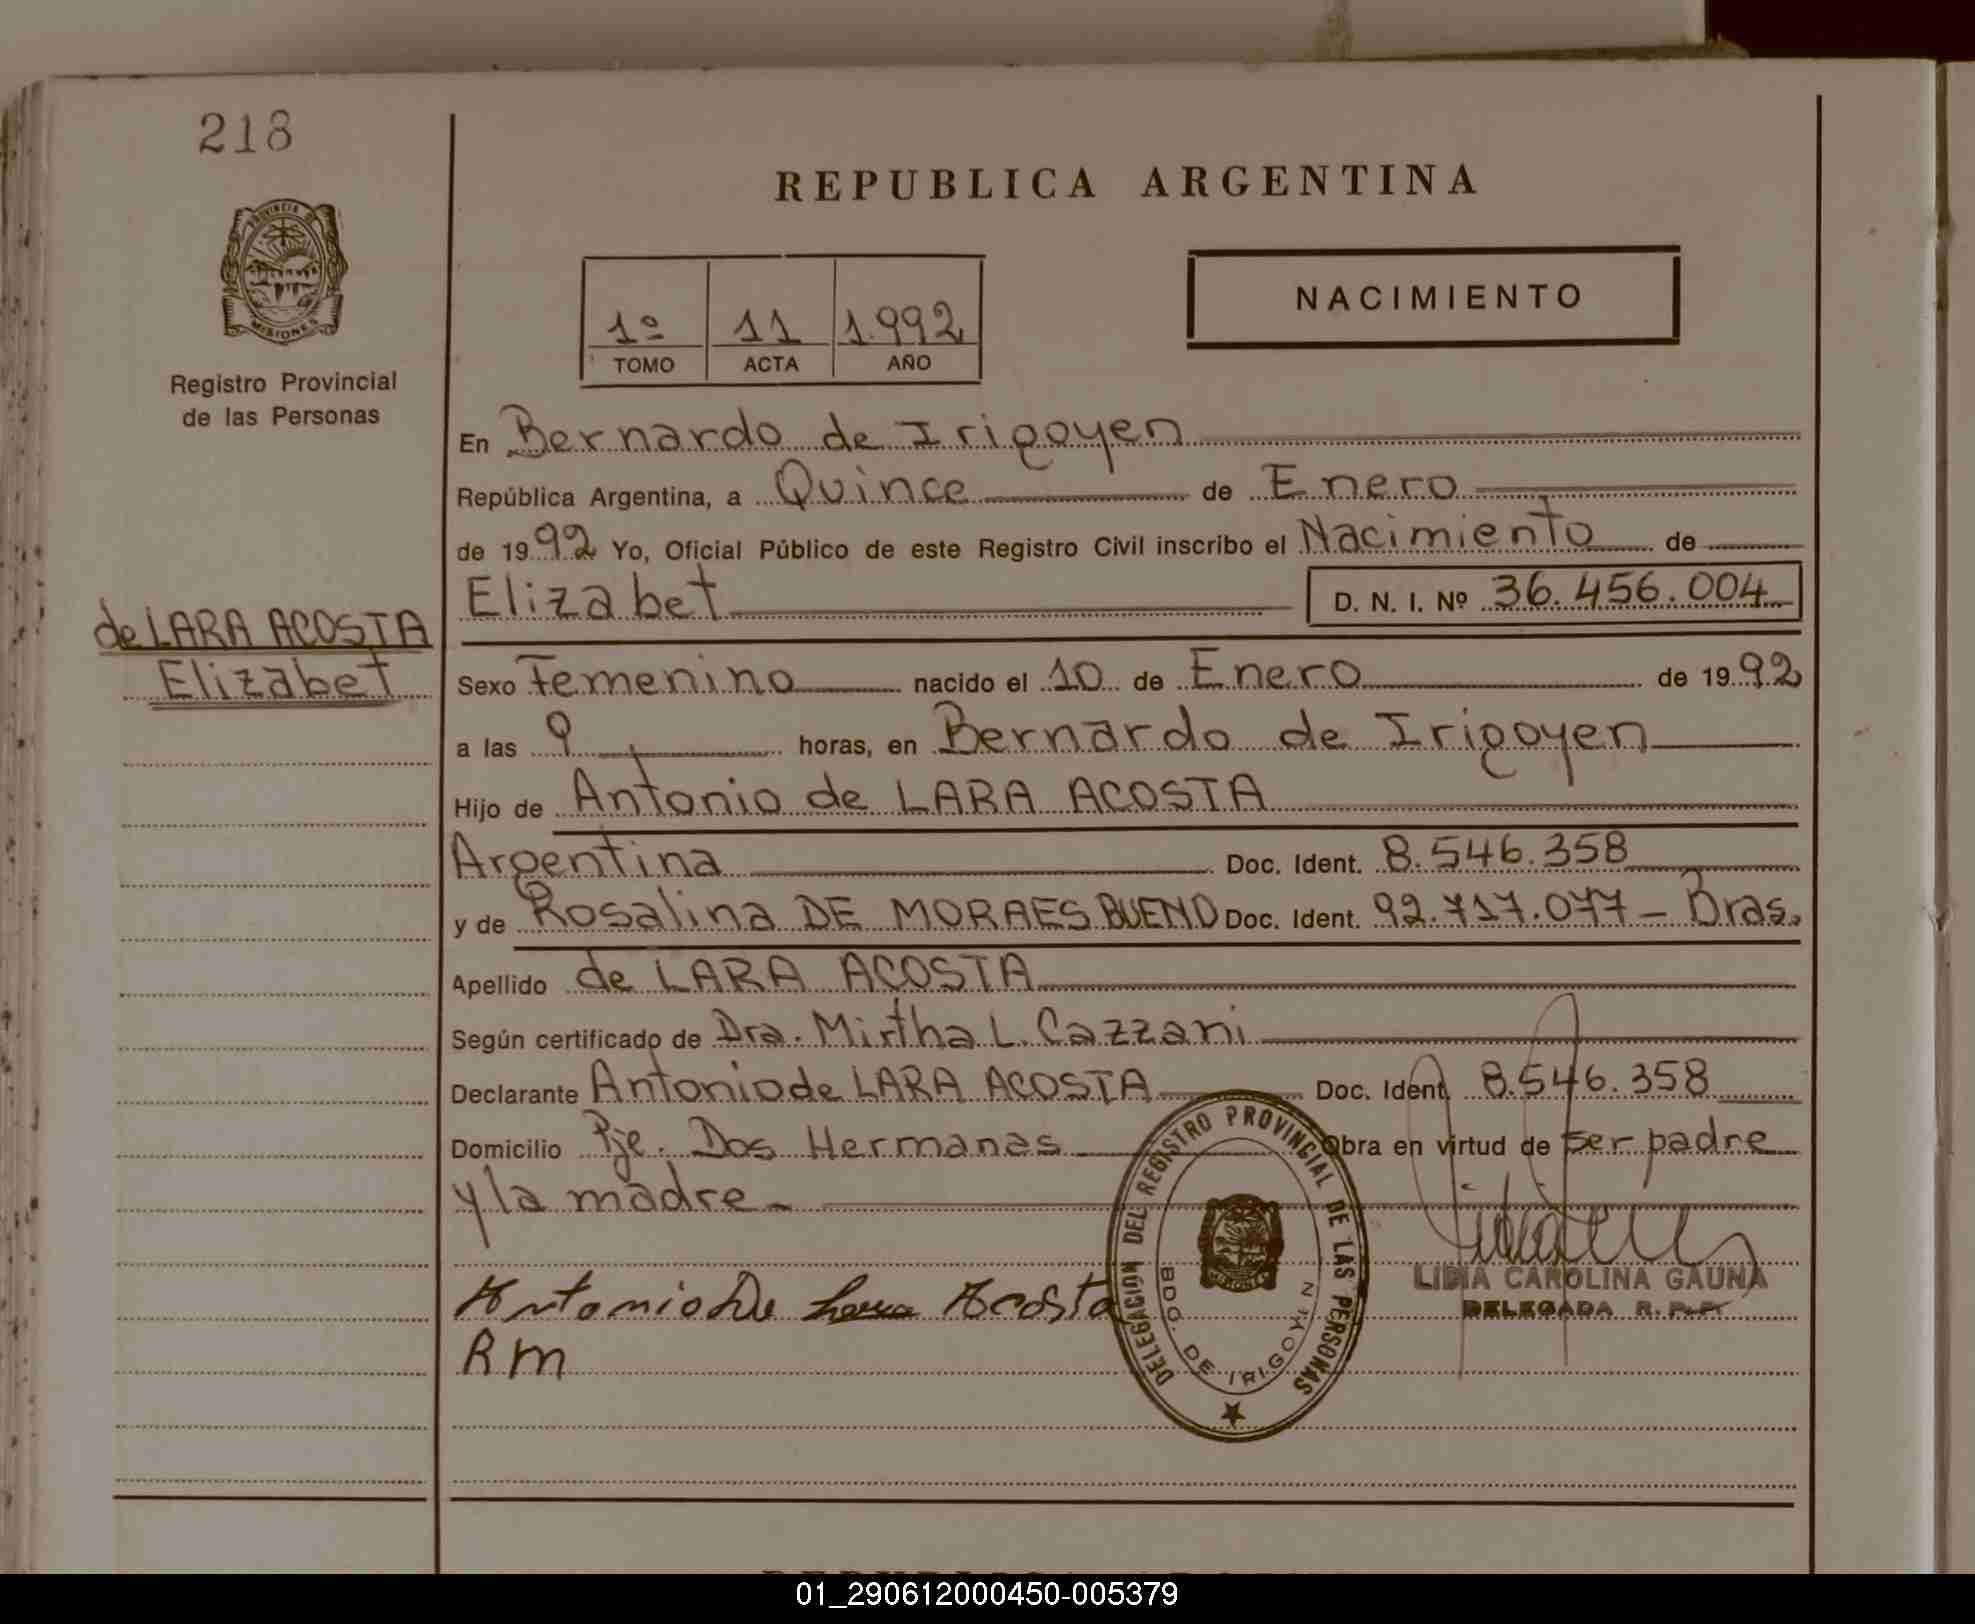 218
PROVINCIA DE
MISIONES
Registro Provincial
de las Personas
de LARA ACOSTA
Elizabet
REPUBLICA ARGENTINA
1º 11 1.992
TOMO ACTA AÑO
NACIMIENTO
En Bernardo de Irigoyen
República Argentina, a Quince de Enero
de 1992 Yo, Oficial Público de este Registro Civil inscribo el Nacimiento de
Elizabet D. N. I. Nº 36.456.004
Sexo Femenino nacido el 10 de Enero de 1992
a las 9 horas, en Bernardo de Irigoyen
Hijo de Antonio de LARA ACOSTA
Argentina Doc. Ident. 8.546.358
y de Rosalina DE MORAES BUENO Doc. Ident. 92.717.077 - Bras.
Apellido de LARA ACOSTA
Según certificado de Dra. Mirtha L. Cazzani
Declarante Antonio de LARA ACOSTA Doc. Ident. 8.546.358
Domicilio Pje. Dos Hermanas Obra en virtud de ser padre
y la madre.-
Antonio De Lara Acosta
R m
DELEGACION DEL REGISTRO PROVINCIAL DE LAS PERSONAS
BDO. DE IRIGOYEN
MISIONES
LIDIA CAROLINA GAUNA
DELEGADA R. P. P.
01_290612000450-005379